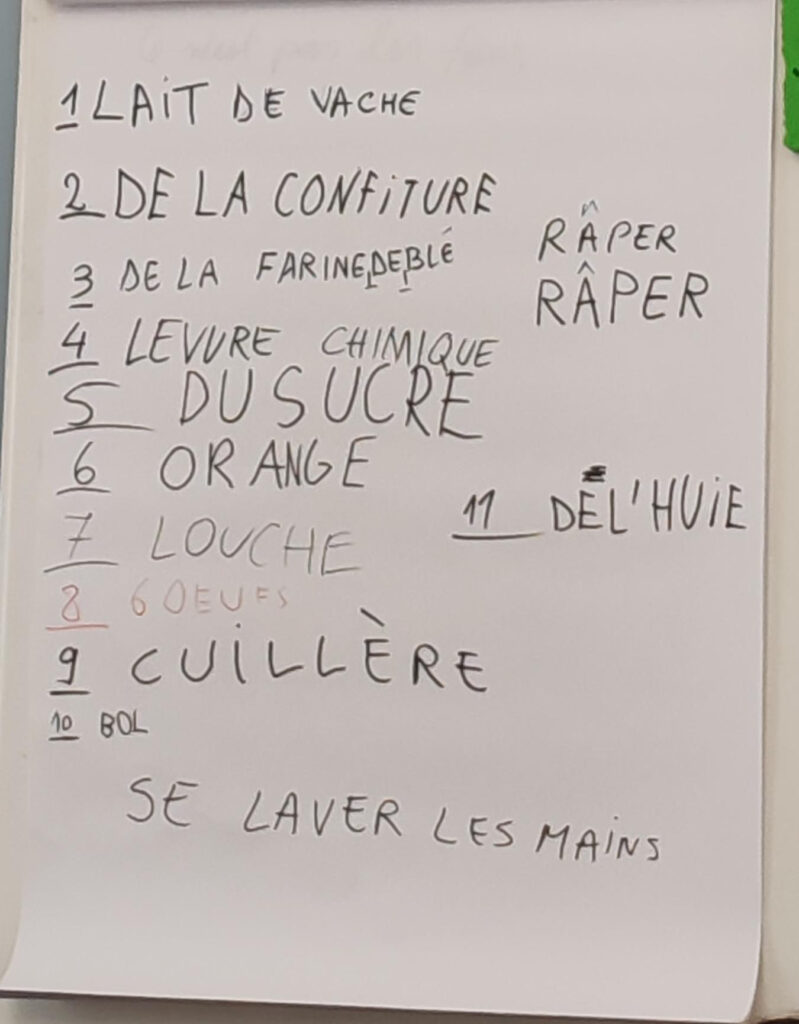 1 LAIT DE VACHE
2 DE LA CONFITURE
3 DE LA FARINE DE BLÉ
RÂPER
RÂPER
4 LEVURE CHIMIQUE
5 DU SUCRE
6 ORANGE
11 DE L'HUIE
7 LOUCHE
8 6 OEUFS
9 CUILLÈRE
10 BOL
SE LAVER LES MAINS